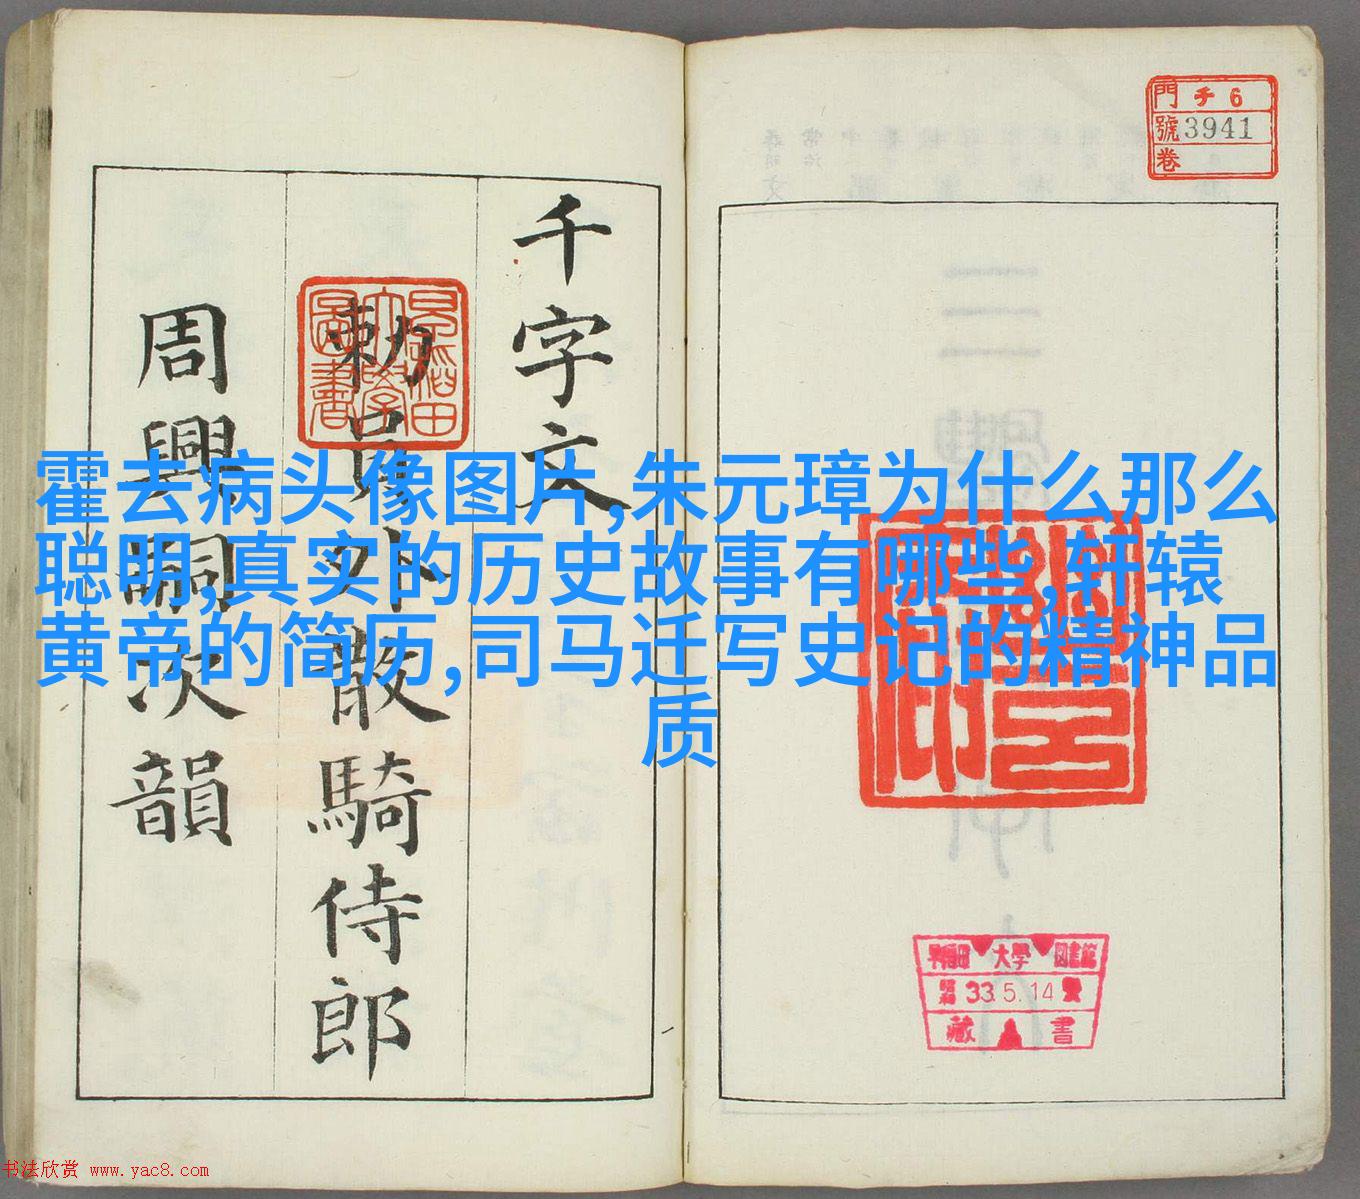 門 チ 6
號 3941
卷
千字文
勅員外散騎侍郎
周興嗣次韻
早稻田大學圖書
霍去病头像图片,朱元璋为什么那么
聪明,真实的历史故事有哪些,轩辕
黄帝的简历,司马迁写史记的精神品
质
早稲田 大學 図書館
昭和 33.5.14
藏 書
书法欣赏 www.yac8.com